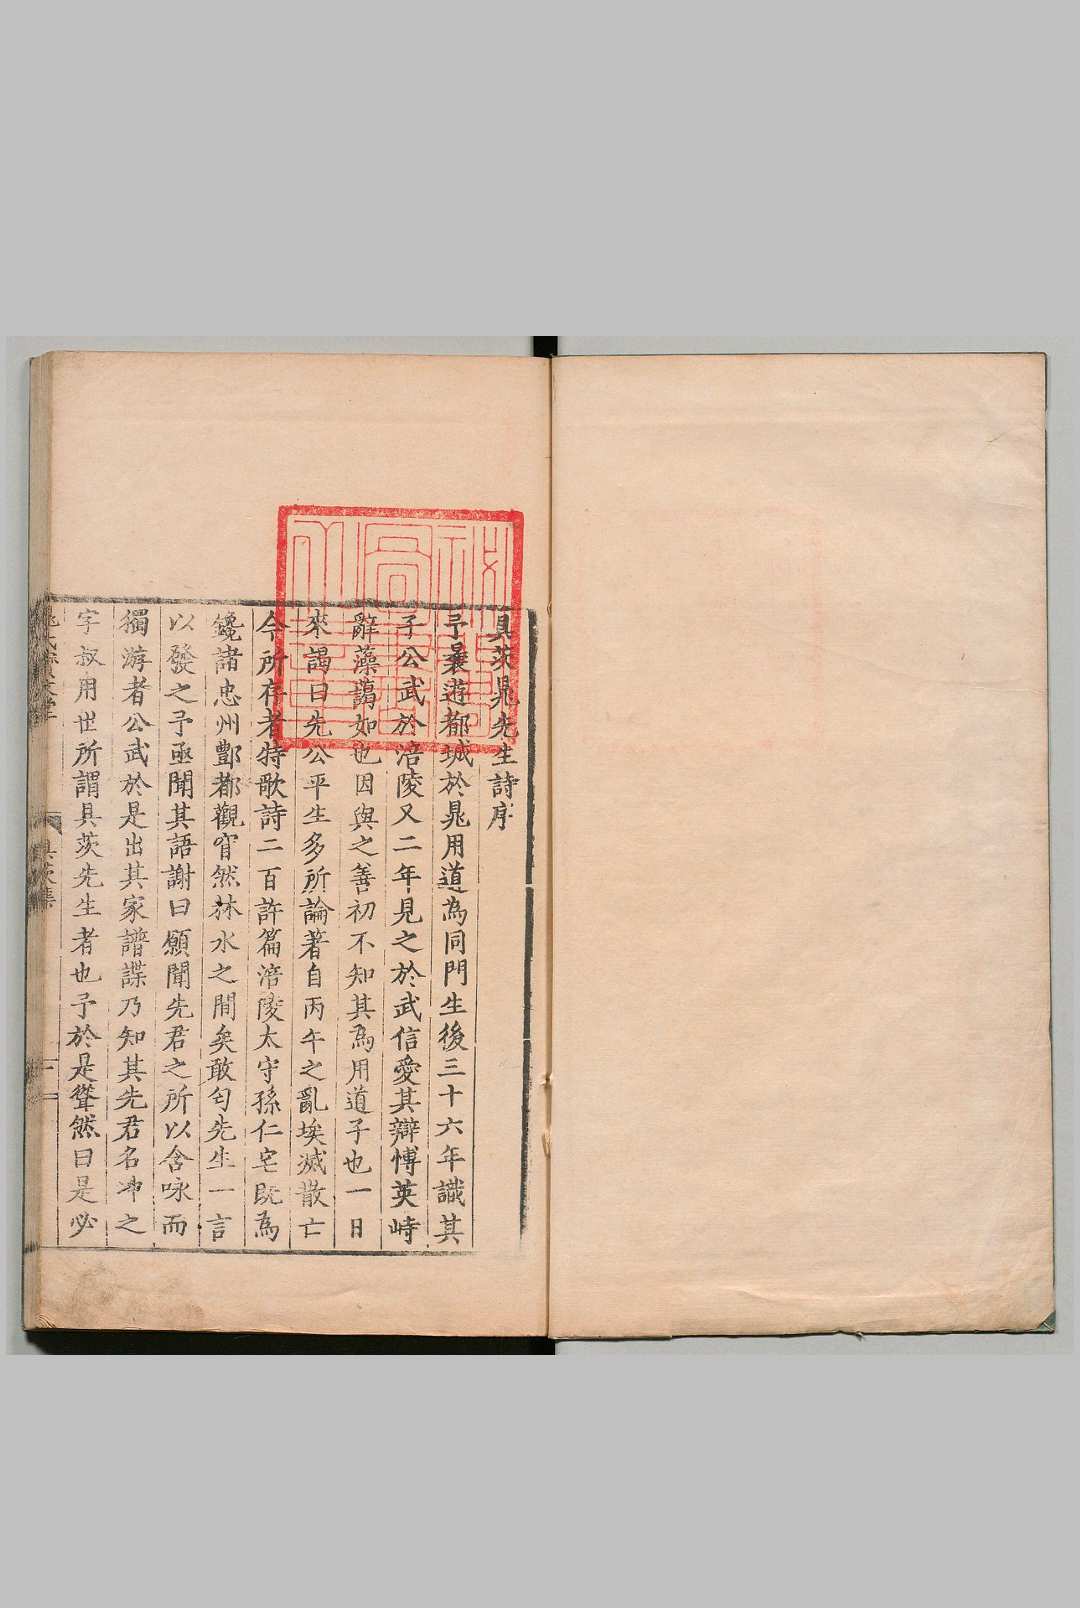 具茨晁先生詩序
予曩遊都城於晁用道為同門生後三十六年識其
子公武於涪陵又二年見之於武信愛其辯博英峙
辭藻藹如也因與之善初不知其為用道子也一日
來謁曰先公平生多所論著自丙午之亂埃滅散亡
今所存者特歌詩二百許篇涪陵太守孫仁宅既為
鑱諸忠州酆都觀窅然林水之間矣敢匄先生一言
以發之予亟聞其語謝曰願聞先君之所以含咏而
獨游者公武於是出其家譜諜乃知其先君名冲之
字叔用世所謂具茨先生者也予於是聳然曰是必
具茨集
一